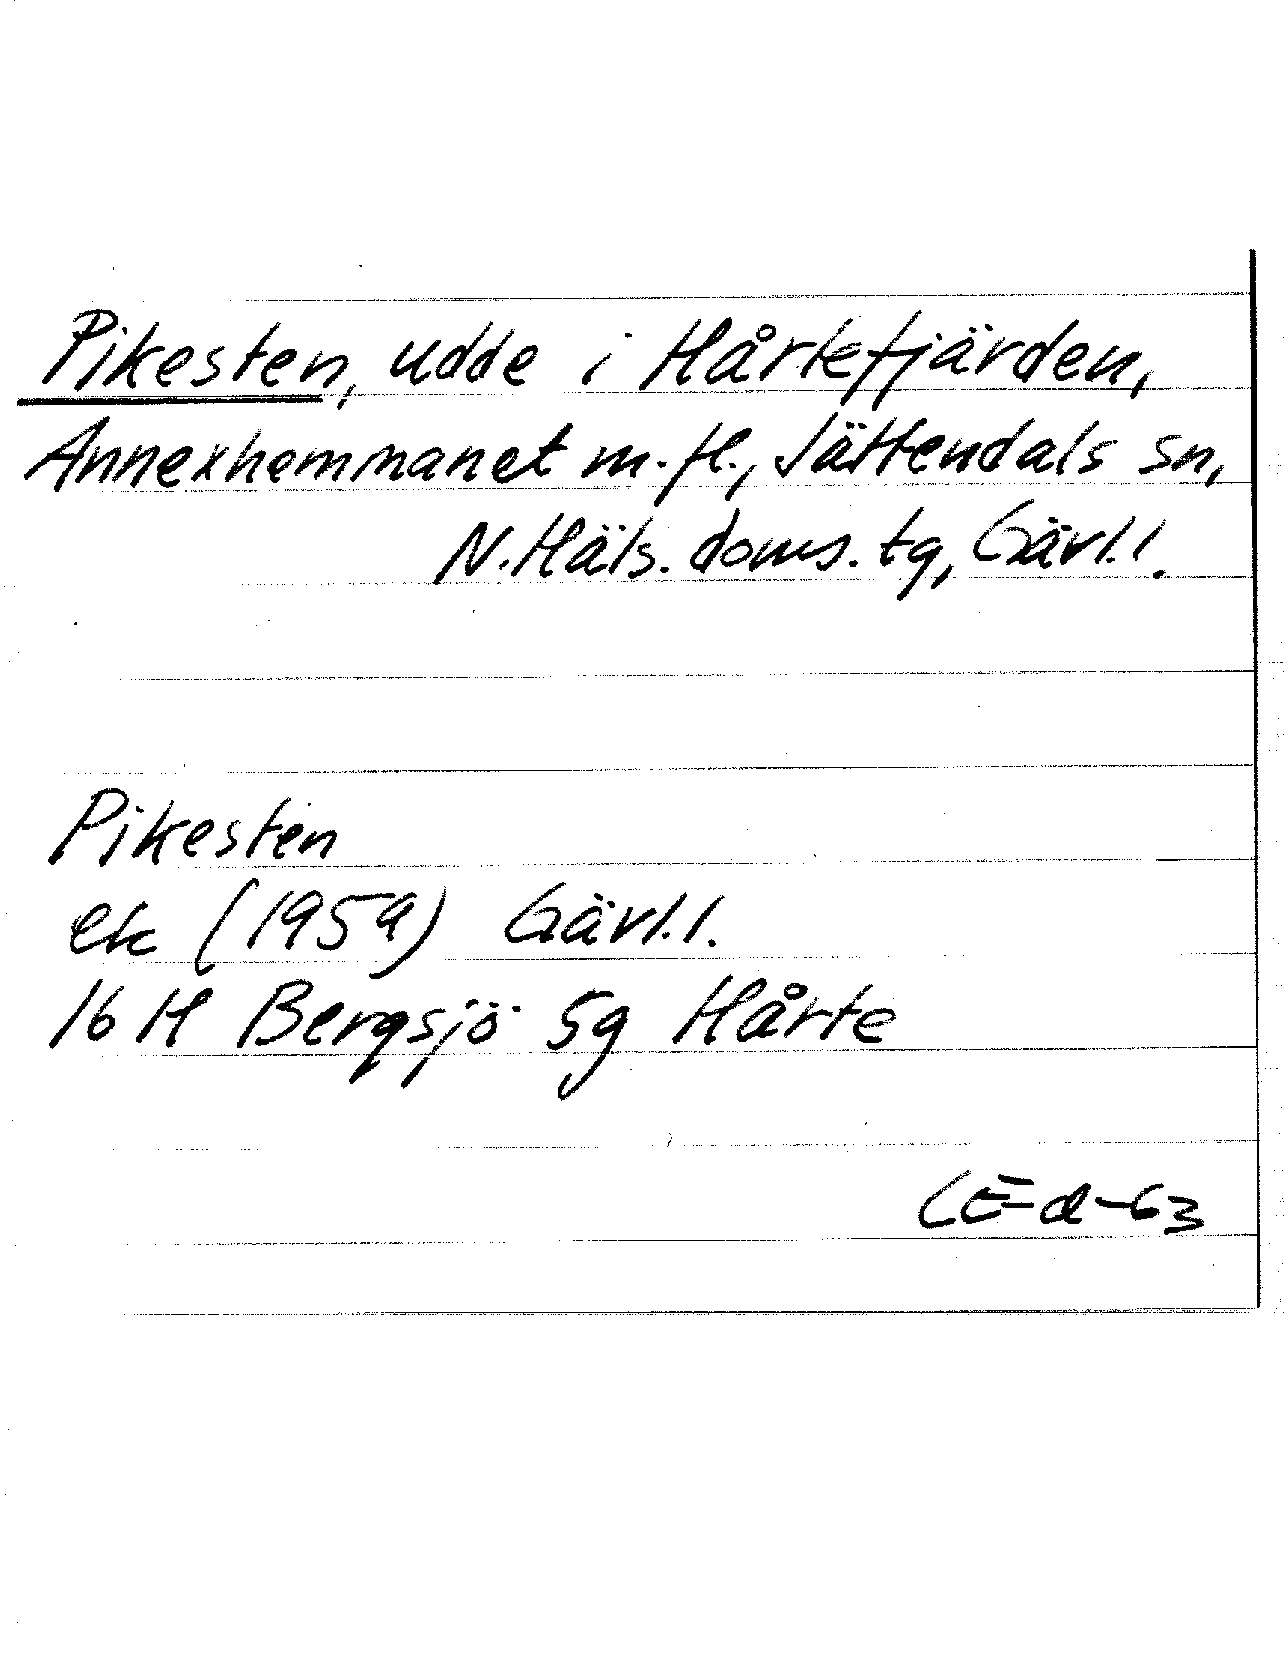 Pikesten, udde i Hårtefjärden,
Annexhemmanet m.fl., Jättendals sn,
N.Häls. doms. tg, Gävl.l.
Pikesten
ek (1959) Gävl.l.
16 H Bergsjö 5g Hårte
CEd-63